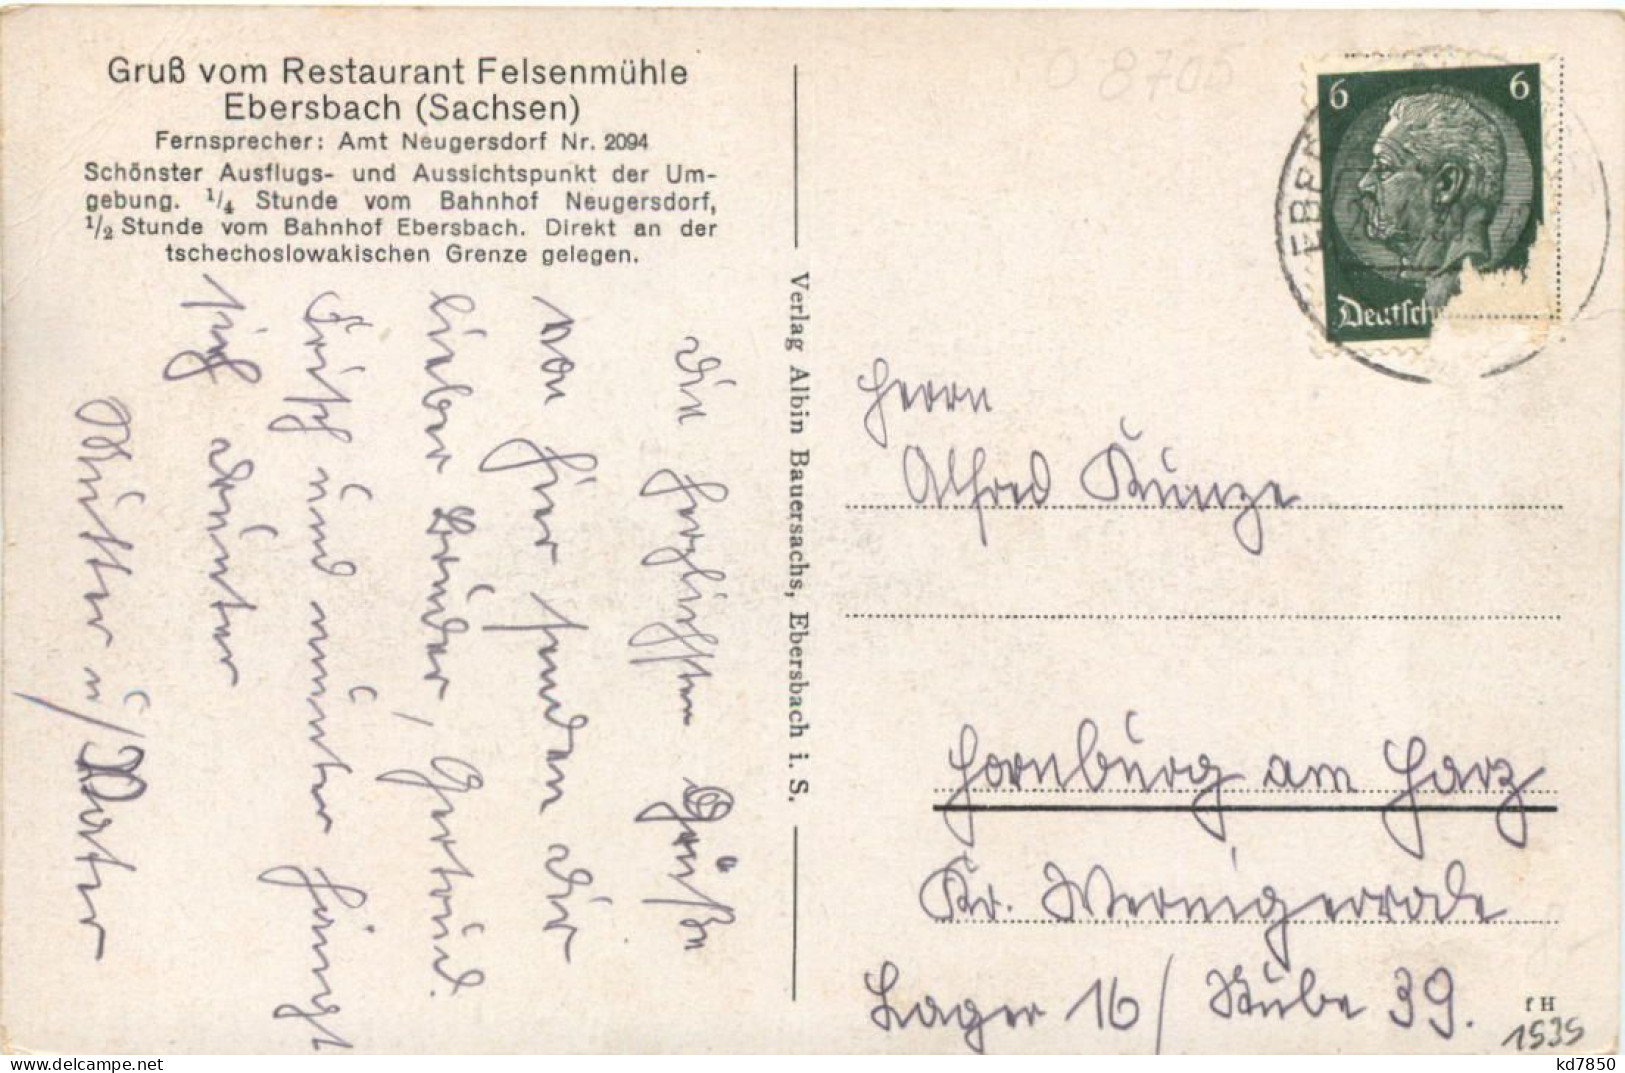 Gruß vom Restaurant Felsenmühle
Ebersbach (Sachsen)
Fernsprecher: Amt Neugersdorf Nr. 2094
Schönster Ausflugs- und Aussichtspunkt der Um-
gebung. 1/4 Stunde vom Bahnhof Neugersdorf,
1/2 Stunde vom Bahnhof Ebersbach. Direkt an der
tschechoslowakischen Grenze gelegen.
Die herzlichsten Grüße
von hier senden Dir
lieber Bruder, Gertrud
Fritz und munter hängt
sich drunter
Mutter u/Vater
Verlag Albin Bauersachs, Ebersbach i. S.
0 8705
6 6
Deutsch
EBE
Herrn
Alfred Kunze
Hornburg am Harz
Kr. Wernigerode
Lager 16/ Stube 39.
f H
1535
kd7850